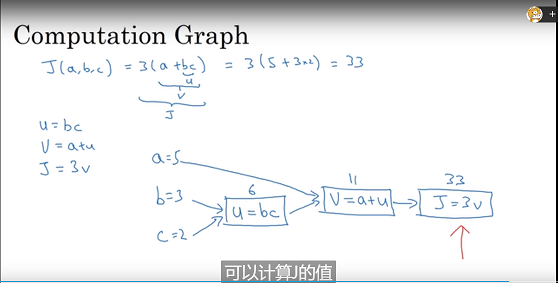 Computation Graph
J(a,b,c) = 3(a+bc) = 3(5+3×2) = 33
u
v
J
u=bc
V=a+u
J=3v
a=5
11
33
b=3
6
u=bc
V=a+u
J=3v
c=2
可以计算J的值